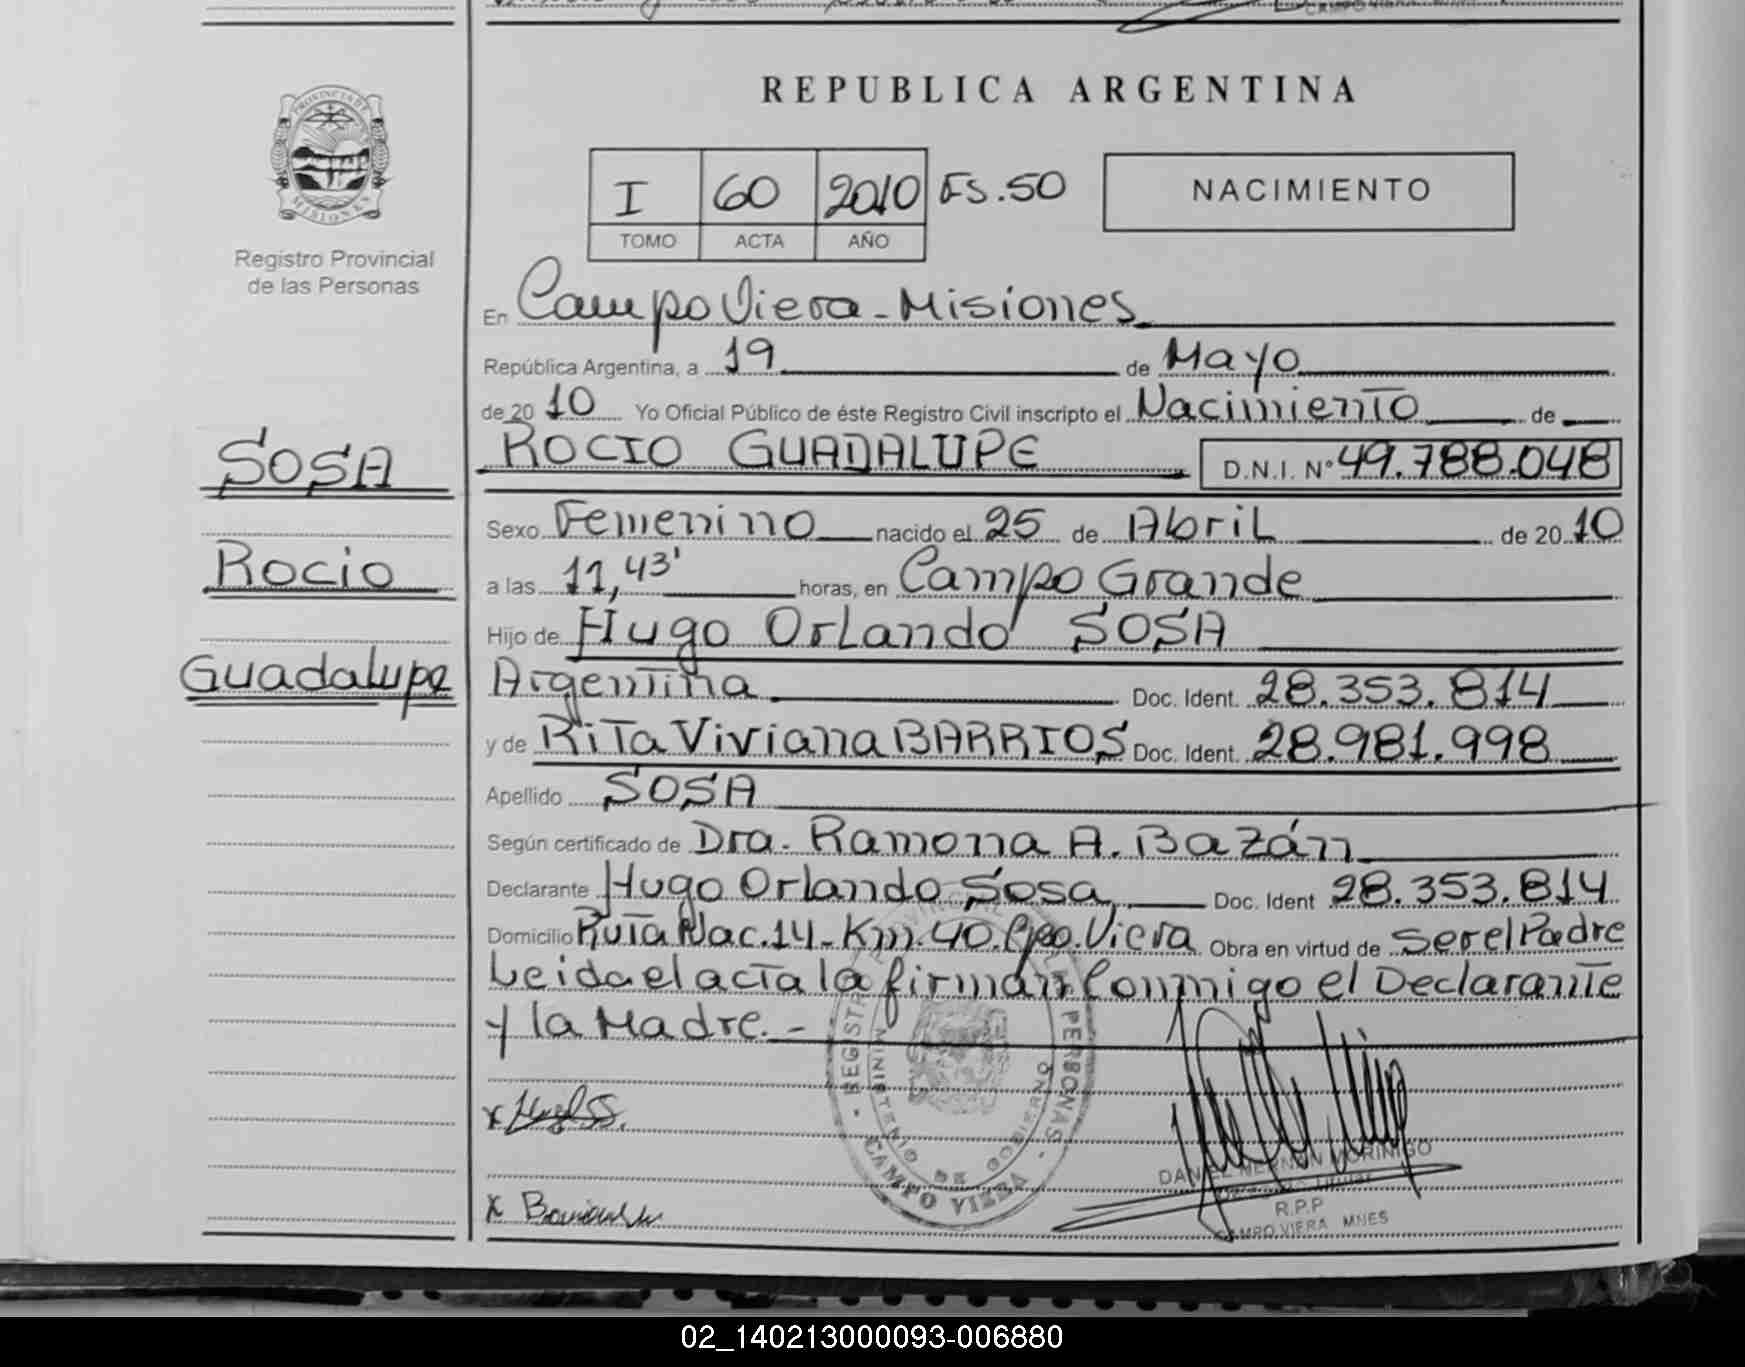 REPUBLICA ARGENTINA
PROVINCIA DE
MISIONES
Registro Provincial
de las Personas
I 60 2010 Fs.50
TOMO ACTA AÑO
NACIMIENTO
En Campo Viera - Misiones
República Argentina, a 19 de Mayo
de 20 10 Yo Oficial Público de éste Registro Civil inscripto el Nacimiento de
ROCIO GUADALUPE D.N.I. Nº 49.788.048
SOSA
Rocio
Guadalupe
Sexo Femenino nacido el 25 de Abril de 20 10
a las 11,43' horas, en Campo Grande
Hijo de Hugo Orlando SOSA
Argentina Doc. Ident. 28.353.814
y de Rita Viviana BARRIOS Doc. Ident. 28.981.998
Apellido SOSA
Según certificado de Dra. Ramona A. Bazán
Declarante Hugo Orlando Sosa Doc. Ident 28.353.814
Domicilio Ruta Nac.14-Km.40.Cpo.Viera Obra en virtud de ser el Padre
Leida el acta la firman Conmigo el Declarante
y la Madre. -
REGISTRO PROVINCIAL DE LAS PERSONAS
MINISTERIO DE GOBIERNO
CAMPO VIERA
x
x
DANIEL HERNAN MORINIGO
R.P.P
CAMPO VIERA MNES
02_140213000093-006880